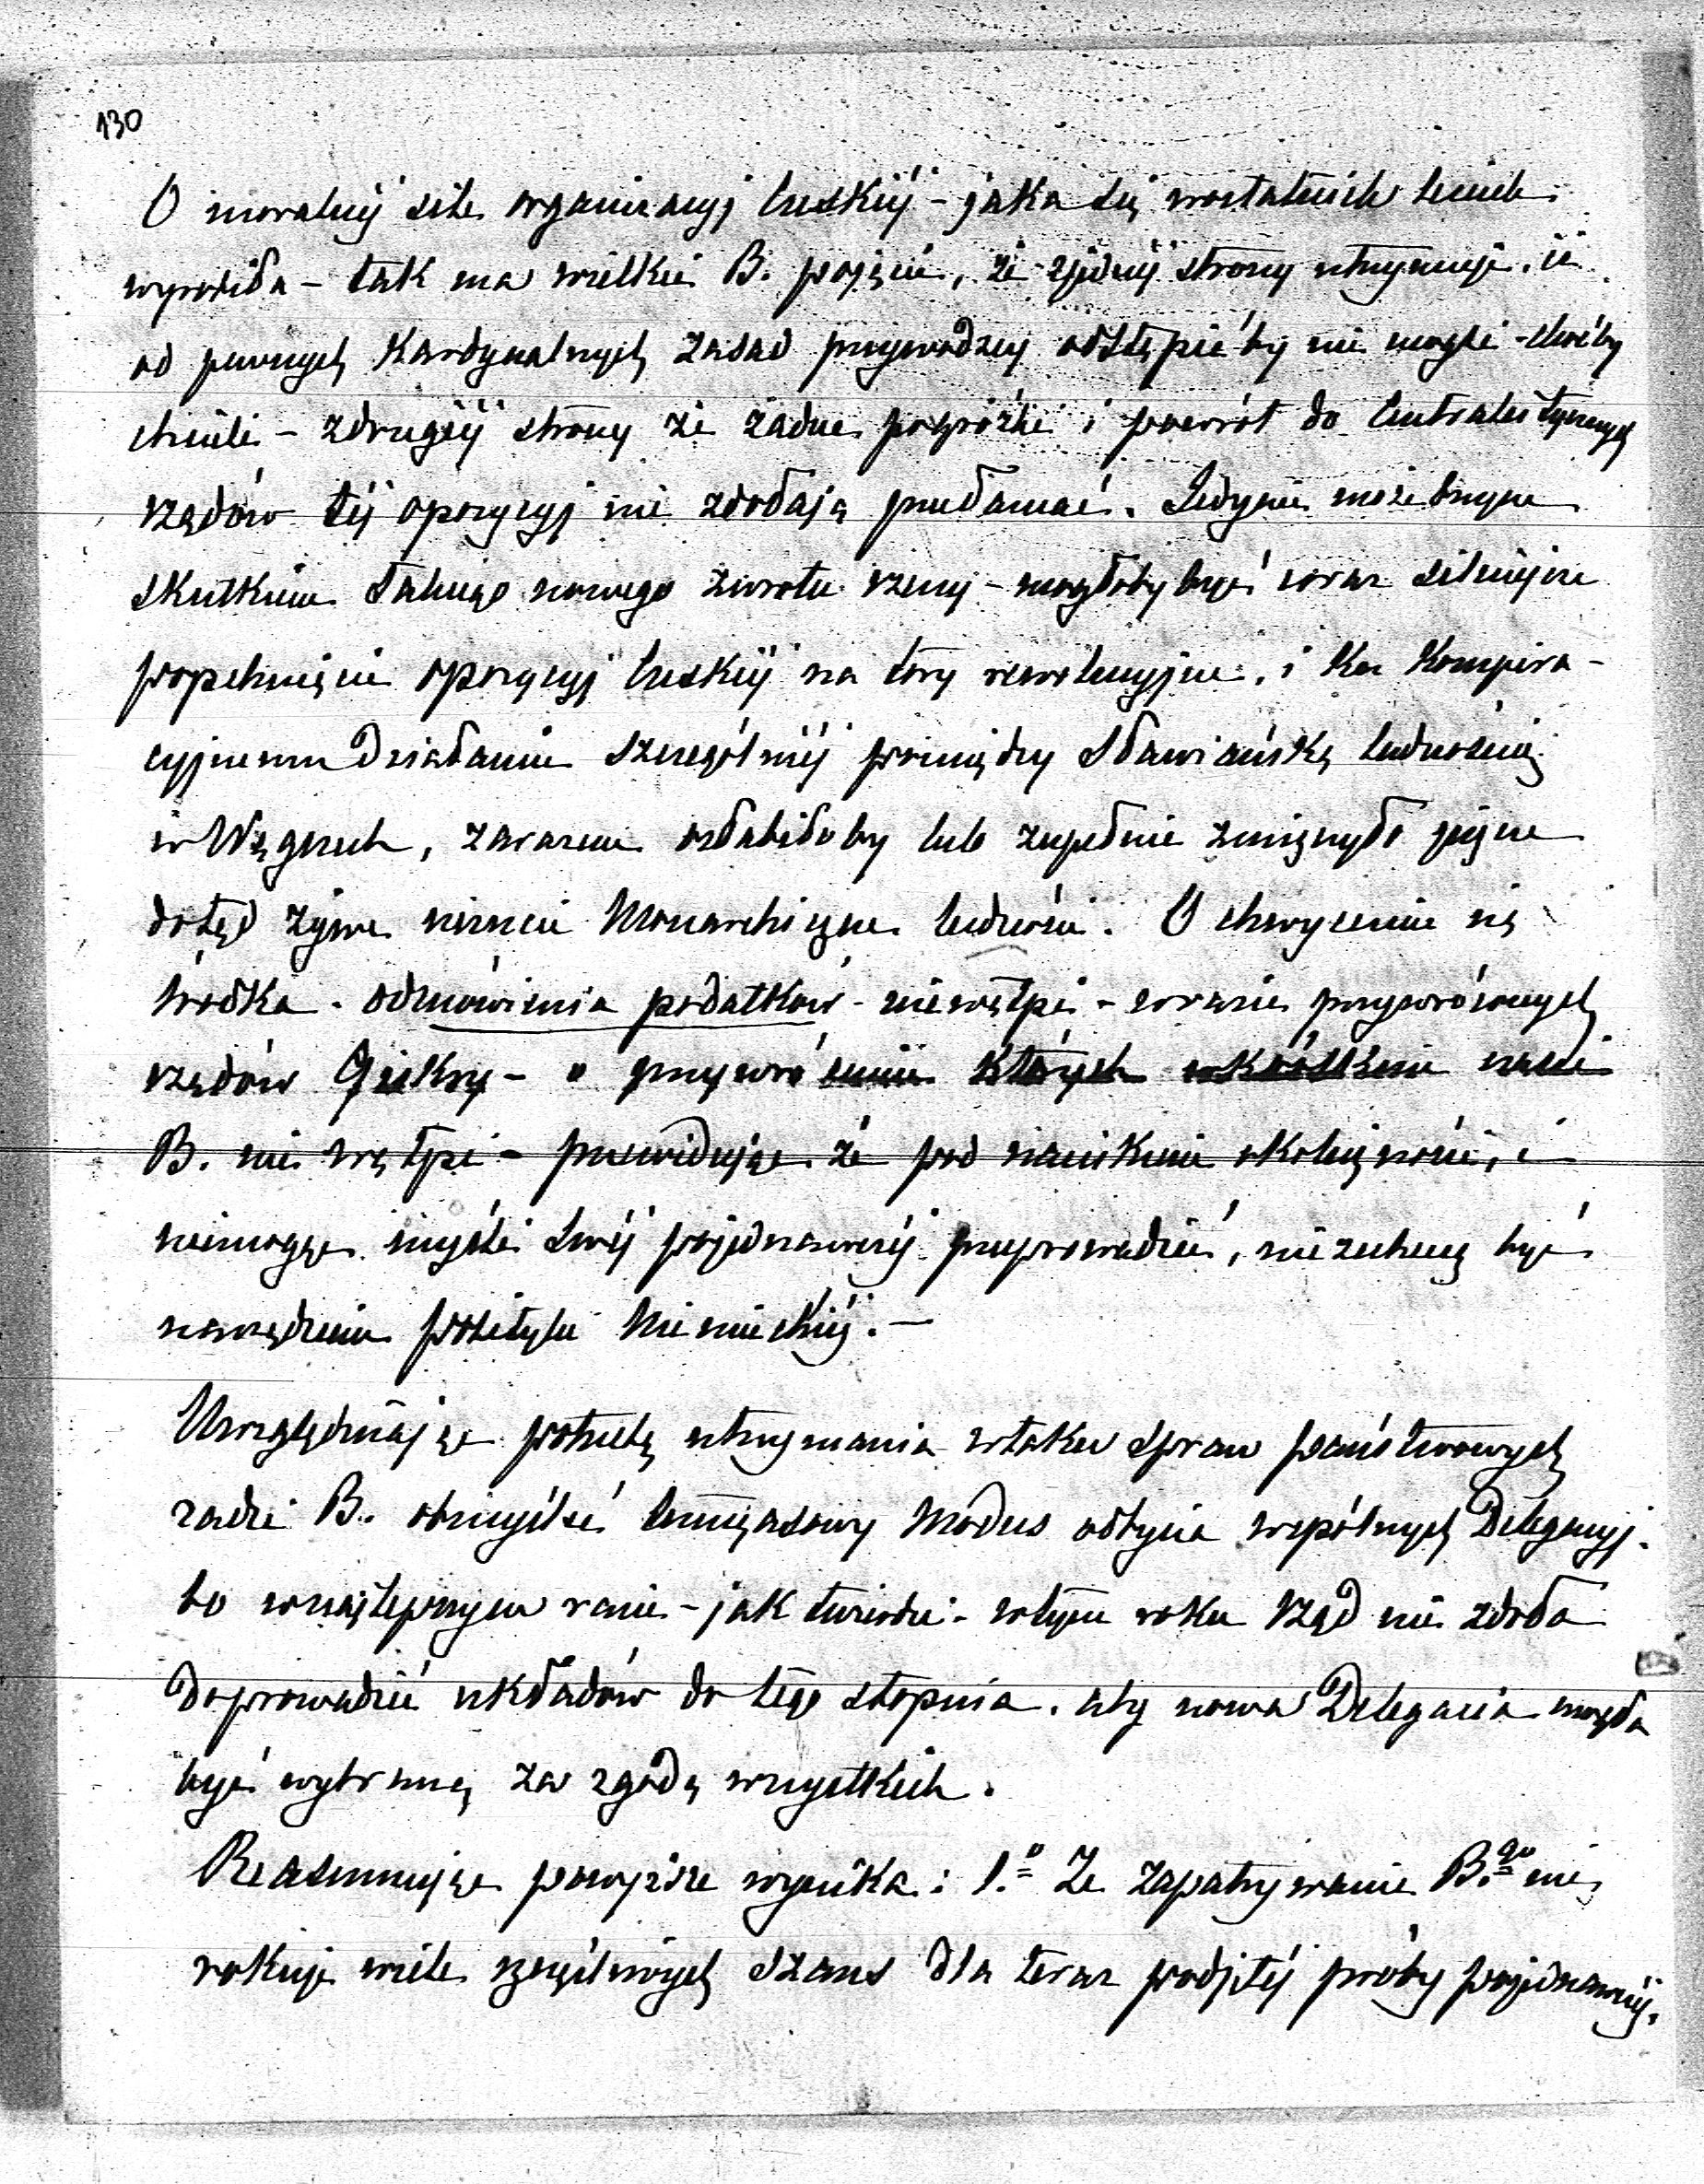 130
O moralnéj sile organizacyj Czeskiéj – jaka się wostatnich leciech
wyrobiła – tak ma wielkie B. pojęcie, że zjednéj strony utrzymuje, iż
od pewnych Kardynalnych zasad przywodzcy odstąpićby nie mogli – choćby
chcieli – zdrugiéj strony że żadne pogróżki i powrót do Centralistycznych
rządów téj opozycyj nie zdołają przełamać. Jedynie możebnym
skutkiem takiego nowego zwrotu rzeczy – mogłoby być coraz silniejsze
popchnięcie opozycyj Czeskiéj na tory rewolucyjne, i ku Konspira-
cyjnemu Działaniu szczególniéj pomiędzy Sławiańską ludnością
w Węgrzech, zarazem osłabiłoby lub zupełnie zniszczyło jeszcze
dotąd żywe uczucie Monarchiczne ludności. O chwyceniu się
środka – odmówienia podatków – niewątpi – wrazie przywróconych
rządów Giskry – o przywróceniu których wkrótkim czasie
B. nie wątpi – przewidując że pod naciskiem okoliczności, i
niemogąc myśli swéj pojednawczéj przeprowadzić, nie zechcą być
narzędziem polityki Niemieckiéj. –
Uwzględniając potrzebę utrzymania wtoku spraw państwowych
radzi B. obmyśleć tymczasowy Modus odbycia wspólnych Delegacyj.
bo wnajlepszym razie – jak twierdzi – wtym roku rząd nie zdoła
Doprowadzić układów do tego stopnia, aby nowa Delegacia mogła
być wybraną za zgodą wszystkich.
Reasumując powyższe wynika: 1.º Ze zapatrywanie B.go nie
rokuje wiele szczęśliwych szans dla teraz podjętéj próby pojednawczéj.